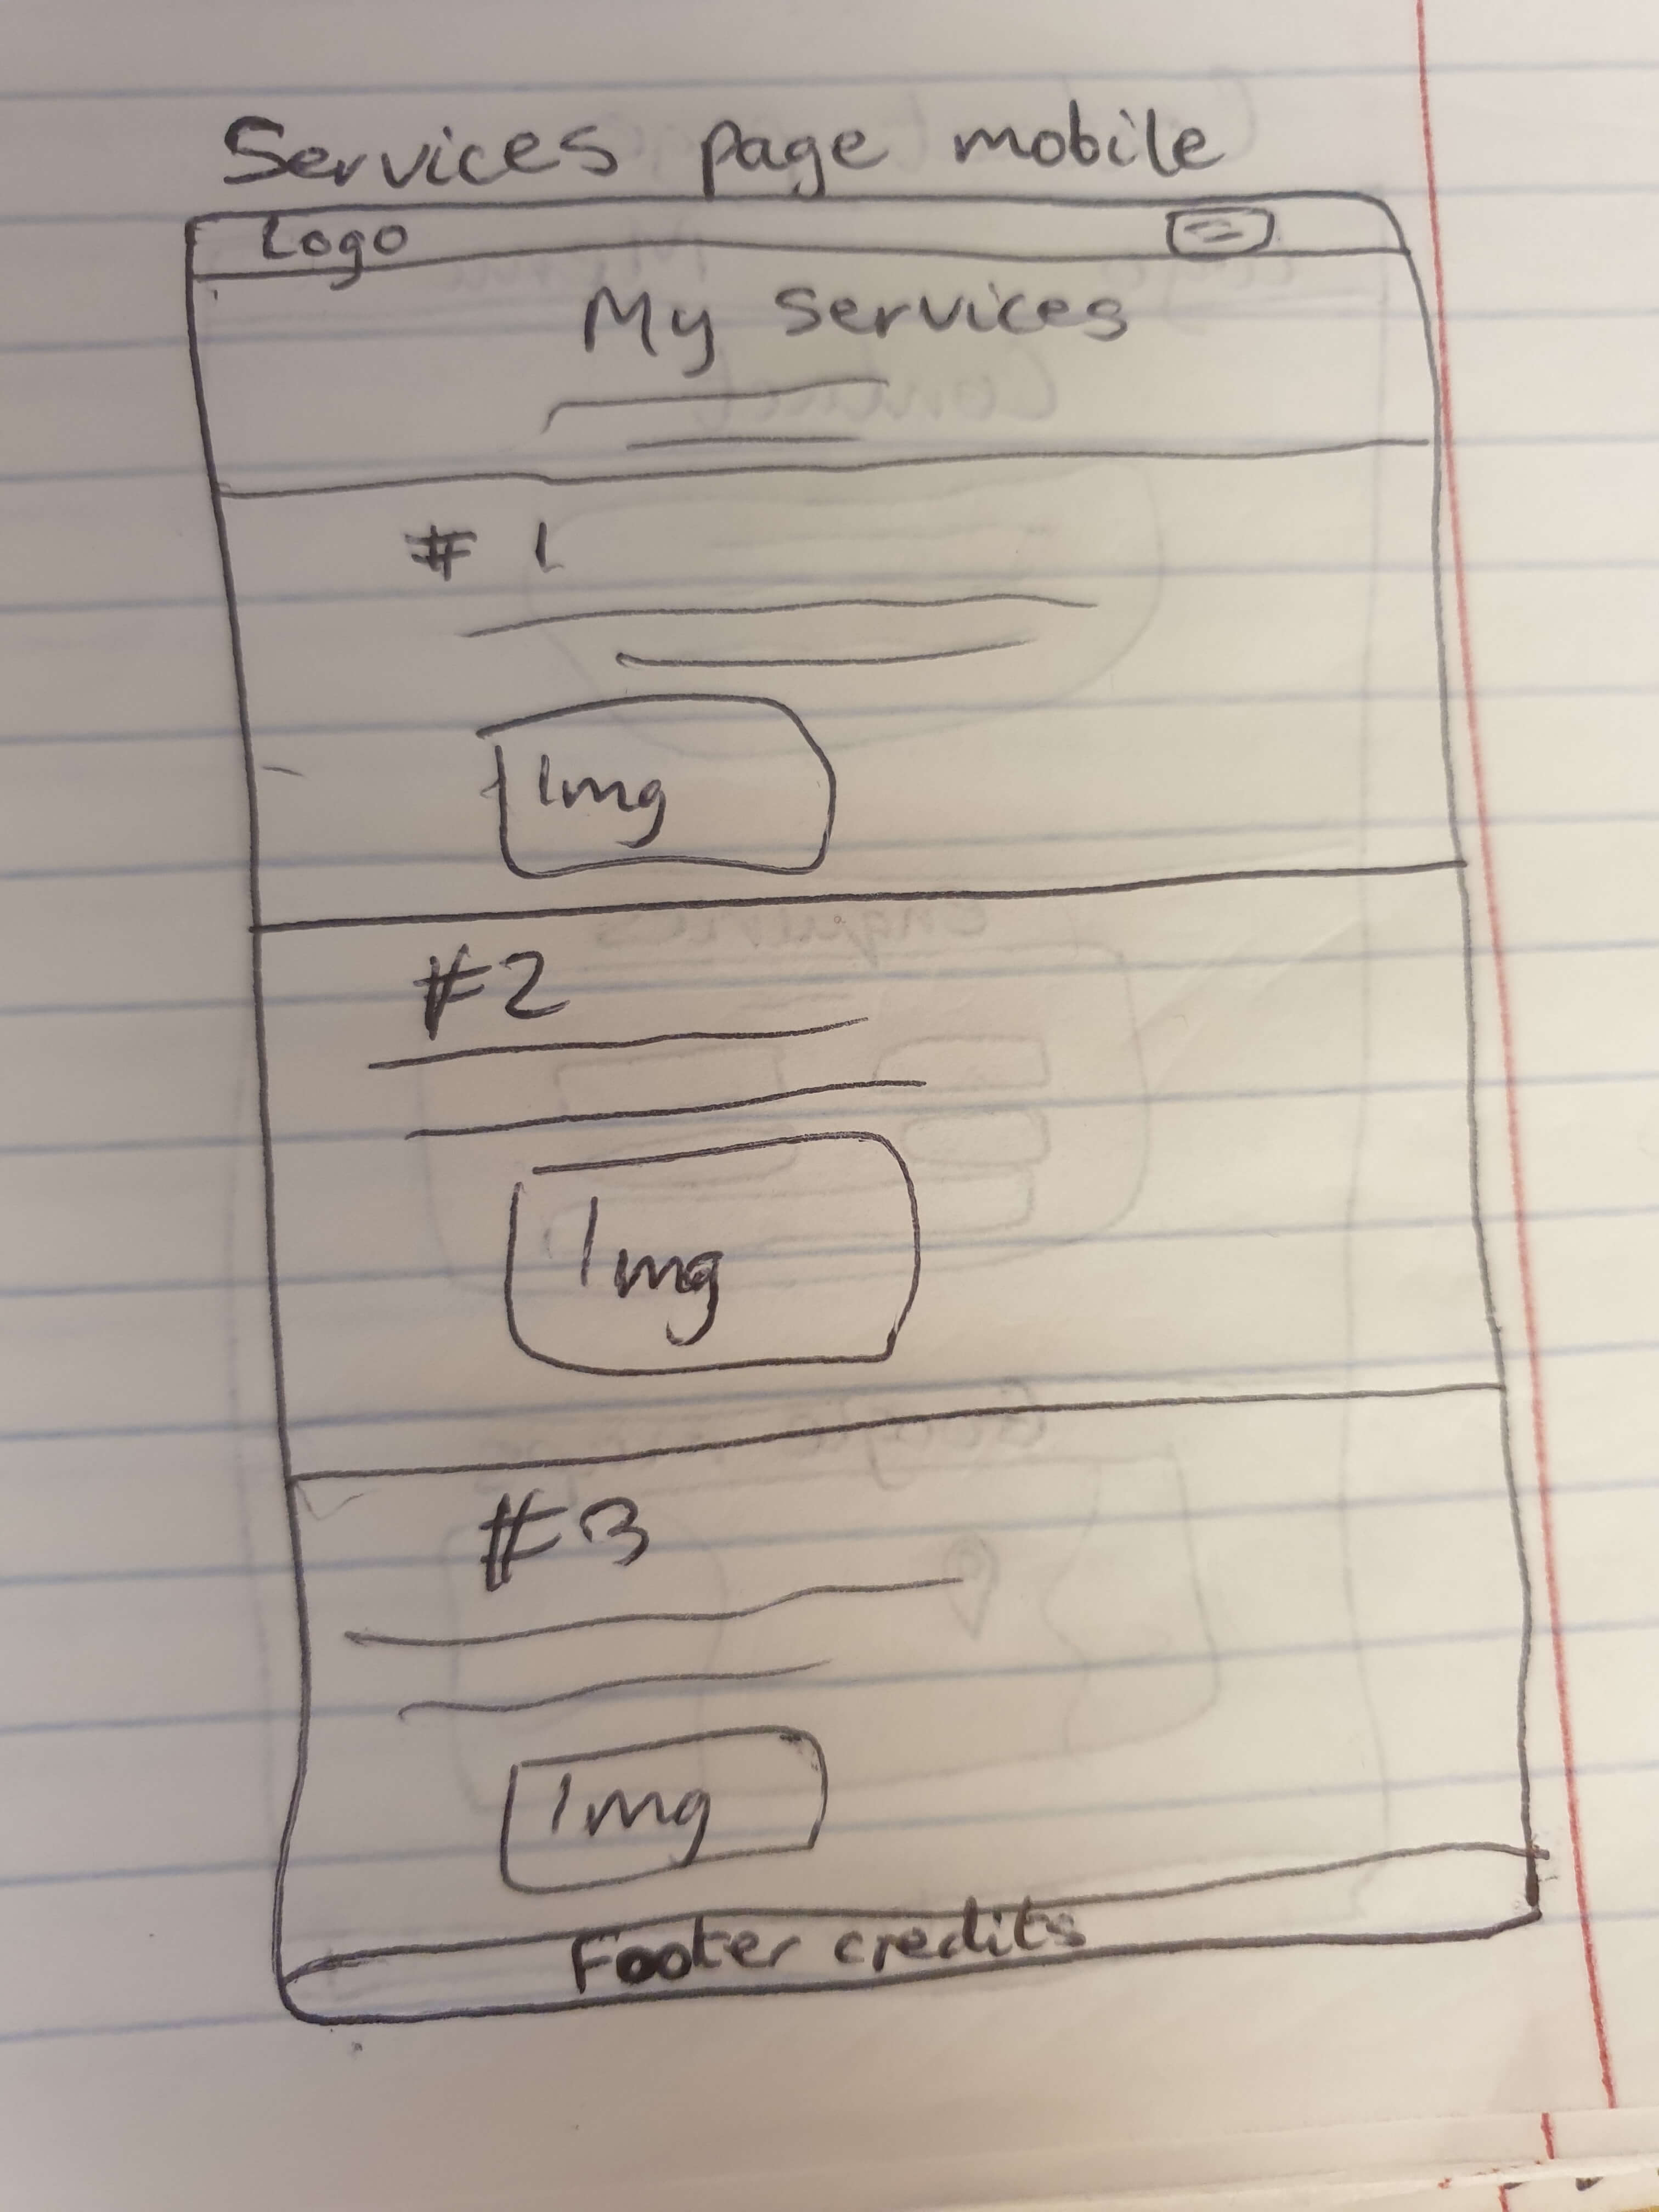 Services page mobile
Logo
My services
# 1
Img
#2
Img
#3
Img
Footer credits